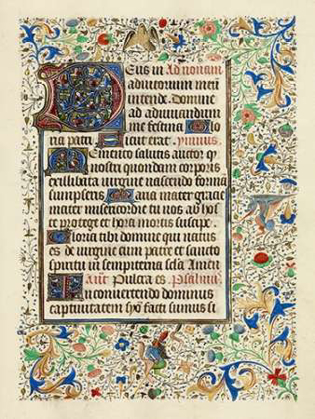 Deus in Ad nonam
adiutorium meu
intende. Domine
ad adiuuandum
me festina Glo
ria patri. Sicut erat. ymnus.
Memento salutis auctor q
nostri quondam corporis
ex illibata uirgine nascendo formā
sumpseris Maria mater gracie
mater misericordie tu nos ab hoste
protege et hora mortis suscipe.
Gloria tibi domine qui natus
es de uirgine cum patre et sancto
spiritu in sempiterna scla Amen
Añt Pulcra es. Psalmus
In conuertendo dominus
captiuitatem syō facti sumus sc